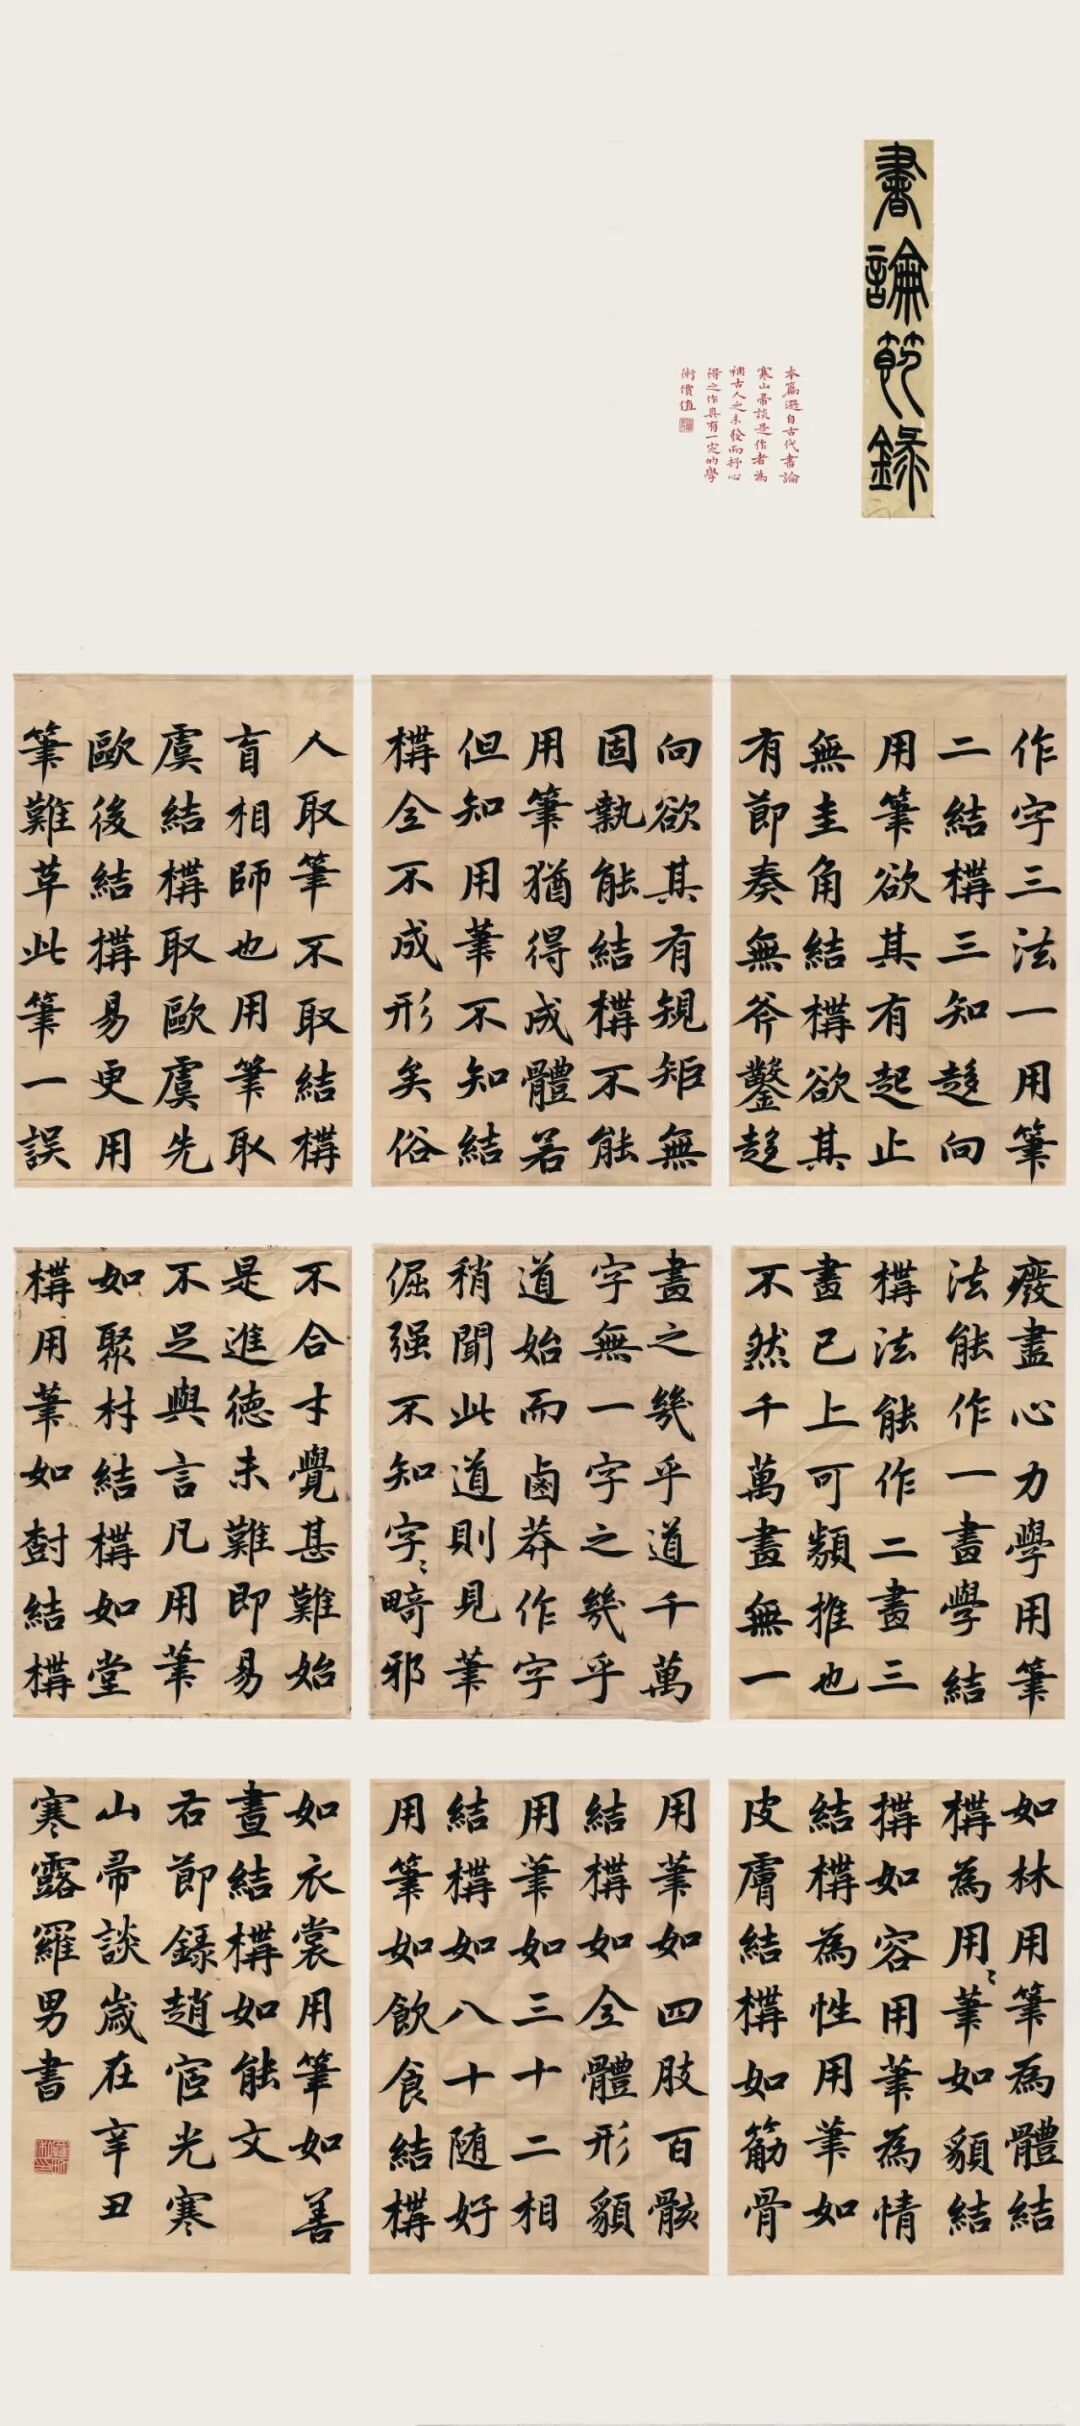 書論節錄
本篇選自古代書論
寒山帚談是作者為
補古人之未發而抒心
得之作具有一定的學
術價值
作字三法一用筆
二結構三知趍向
用筆欲其有起止
無圭角結構欲其
有節奏無斧鑿趍
向欲其有規矩無
固執能結構不能
用筆猶得成體若
但知用筆不知結
構全不成形矣俗
人取筆不取結構
盲相師也用筆取
虞結構取歐虞先
歐後結構易更用
筆難草此筆一誤
廢盡心力學用筆
法能作一畫學結
構法能作二畫三
畫已上可類推也
不然千萬畫無一
畫之幾乎道千萬
字無一字之幾乎
道始而鹵莽作字
稍聞此道則見筆
倔强不知字〻畸邪
不合寸覺甚難始
是進德未難即易
不足與言凡用筆
如聚材結構如堂
構用筆如樹結構
如林用筆為體結
構為用〻筆如貌結
構如容用筆為情
結構為性用筆如
皮膚結構如筋骨
用筆如四肢百骸
結構如全體形貌
用筆如三十二相
結構如八十随好
用筆如飲食結構
如衣裳用筆如善
畫結構如能文
右節錄趙宧光寒
山帚談歲在辛丑
寒露羅男書